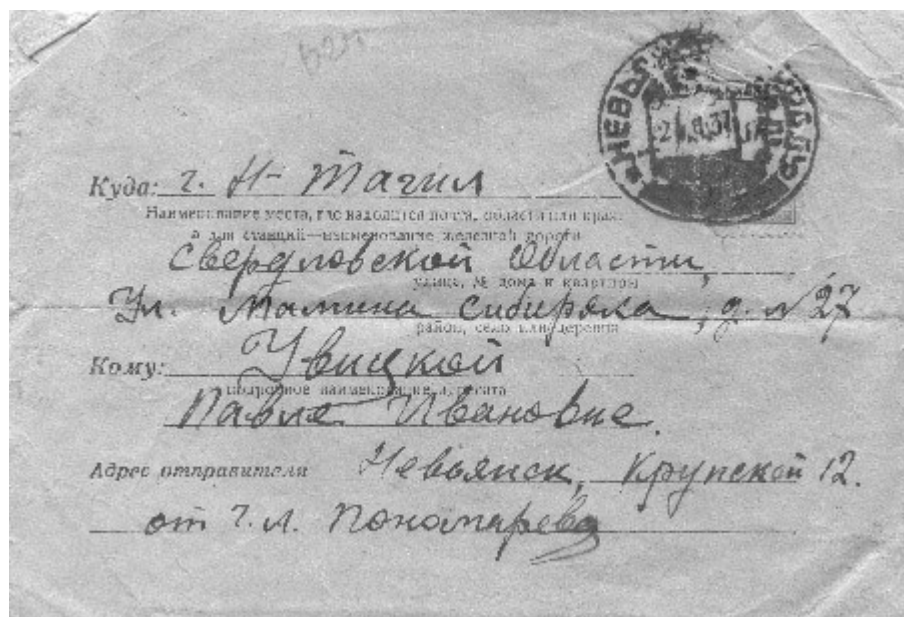 НЕВЬЯНСК
Куда: г. Н-Тагил
Наименование места, где находится почта, области или края
а для станций—наименование железной дороги
Свердловской Области,
улица, № дома и квартиры
Ул. Мамина Сибиряка, д. № 27
район, село или деревня
Кому: Увицкой
подробное наименование адресата
Павле Ивановне.
Адрес отправителя Невьянск, Крупской 12.
от Г. Л. Пономарева